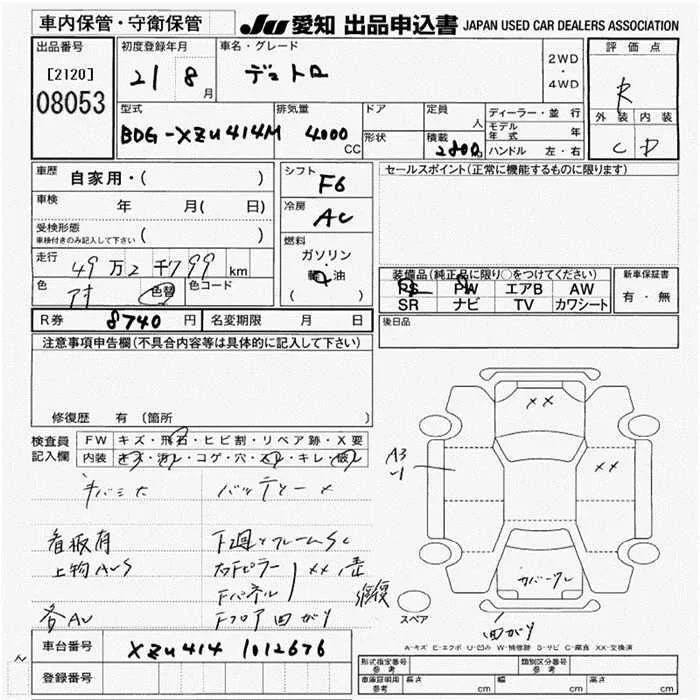 車内保管・守衛保管
JU 愛知 出品申込書 JAPAN USED CAR DEALERS ASSOCIATION
出品番号
[2120]
08053
初度登録年月
21 8 月
車名・グレード
デュトロ
2WD
・
4WD
評価点
R
外装 内装
C D
型式
BDG-XZU414M
排気量
4000 CC
ドア
形状
定員
人
積載
2800
ディーラー・並行
モデル年式 年
ハンドル 左・右
車歴
自家用・( )
車検
年 月( 日)
受検形態
車検付きのみ記入して下さい ( )
走行
49万2千799 km
色
アオ
色替
色コード
シフト
F6
冷房
AC
燃料
ガソリン
・
軽油
( )
セールスポイント(正常に機能するものに限ります)
装備品(純正品に限り○をつけてください)
PS PW エアB AW
SR ナビ TV カワシート
新車保証書
有・無
R券 8740 円 名変期限 月 日
後日品
注意事項申告欄(不具合内容等は具体的に記入して下さい)
修復歴 有 (箇所
検査員
記入欄
FW キズ・飛石・ヒビ割・リペア跡・X要
内装 キズ・汚レ・コゲ・穴・スレ・キレ・破レ
キバミ大
バッテリー×
看板有
下廻りフレームSC
上物AUS
右Fピラー
Fパネル
××歪
修復
各AU
Fフロア曲がり
A3
-1
××
××
カバークレ
スペア
曲がり
A-キズ E-エクボ U-凹み W-補修跡 S-サビ C-腐食 XX-交換済
車台番号 XZU414 1012676
登録番号
形式指定番号
参考
類別区分番号
参考
車庫証明用
参考
長さ cm
幅 cm
高さ cm